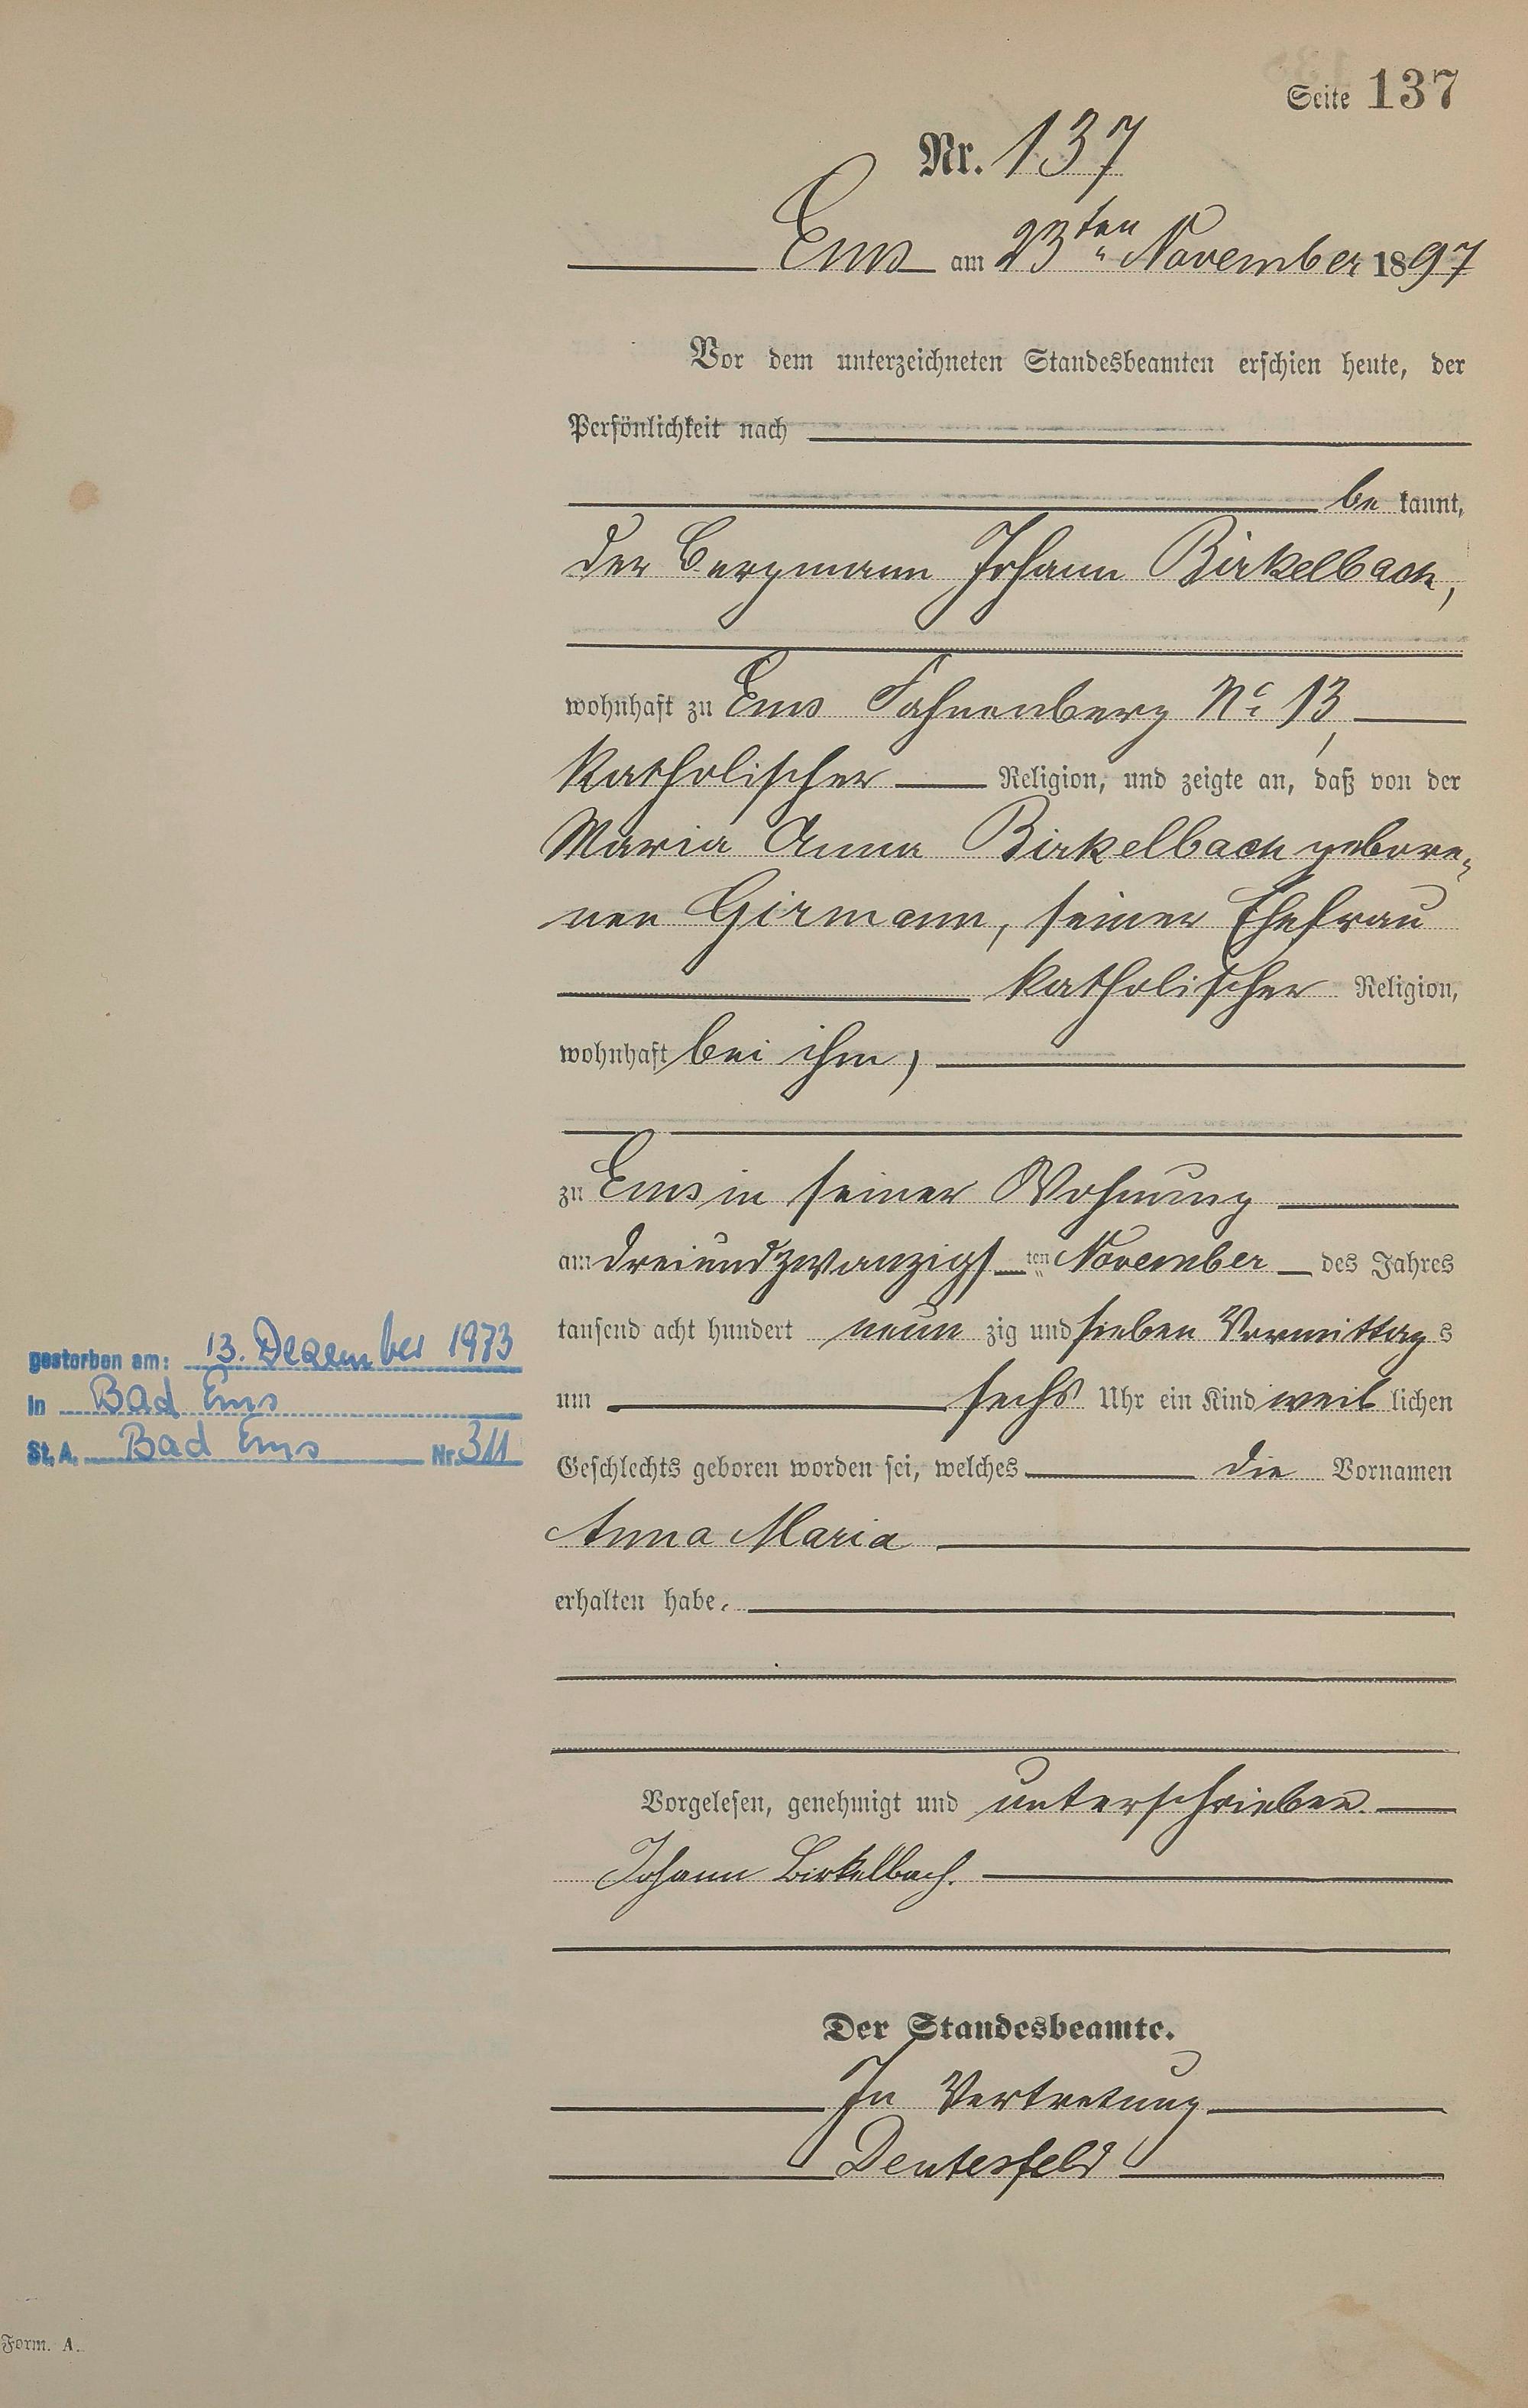 Seite 137
Nr. 137
Ems am 23ten November 1897
Vor dem unterzeichneten Standesbeamten erschien heute, der
Persönlichkeit nach
be kannt,
der Bergmann Johann Birkelbach,
wohnhaft zu Ems Fahnenberg No 13,
katholischer Religion, und zeigte an, daß von der
Maria Anna Birkelbach gebore-
nen Girmann, seiner Ehefrau
katholischer Religion,
wohnhaft bei ihm,
zu Ems in seiner Wohnung
am dreiundzwanzigs ten November des Jahres
tausend acht hundert neun zig und sieben Vormittag s
um sechs Uhr ein Kind weib lichen
Geschlechts geboren worden sei, welches die Vornamen
Anna Maria
erhalten habe.
gestorben am: 13. Dezember 1973
in Bad Ems
St. A. Bad Ems Nr. 311
Vorgelesen, genehmigt und unterschrieben.
Johann Birkelbach.
Der Standesbeamte.
In Vertretung
Deutesfeld
Form. A.